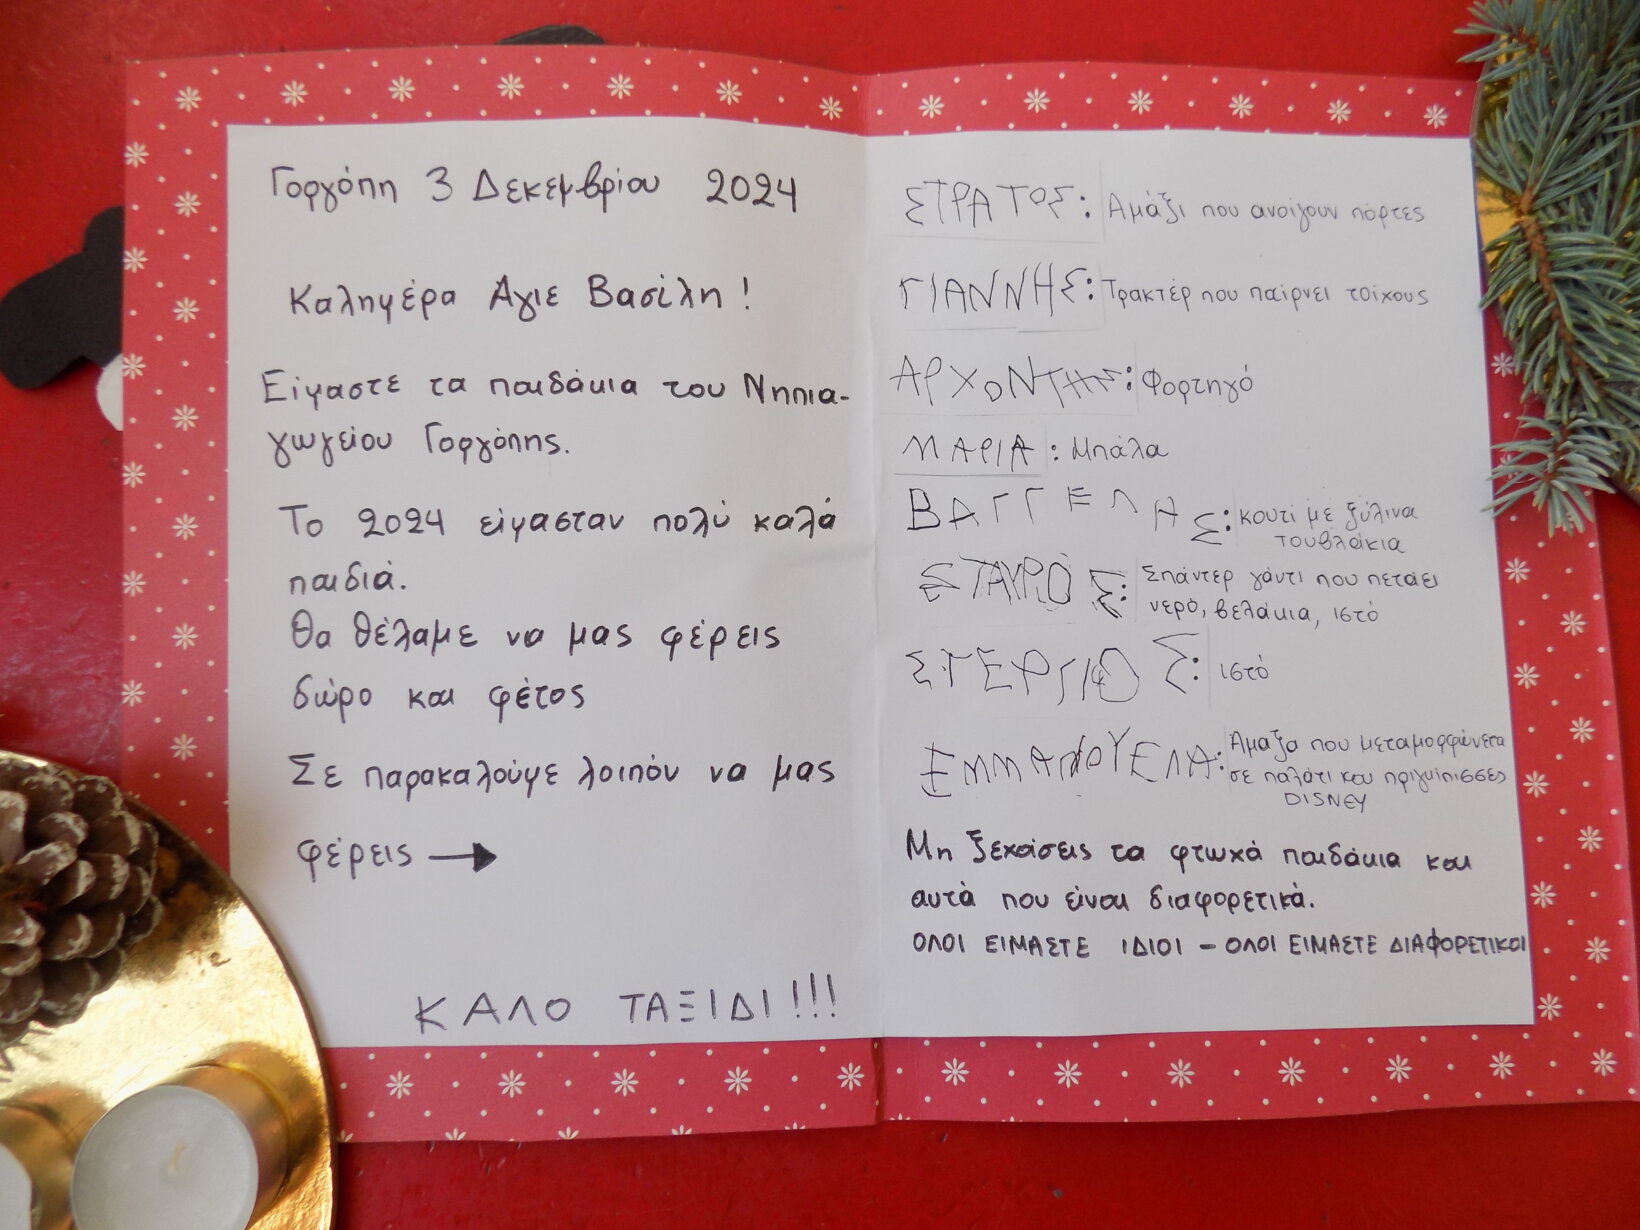 Γοργόπη 3 Δεκεμβρίου 2024
Καλημέρα Άγιε Βασίλη!
Είμαστε τα παιδάκια του Νηπια-
γωγείου Γοργόπης.
Το 2024 είμασταν πολύ καλά
παιδιά.
Θα θέλαμε να μας φέρεις
δώρο και φέτος
Σε παρακαλούμε λοιπόν να μας
φέρεις →
ΚΑΛΟ ΤΑΞΙΔΙ!!!
ΣΤΡΑΤΟΣ: Αμάξι που ανοίγουν πόρτες
ΓΙΑΝΝΗΣ: Τρακτέρ που παίρνει τοίχους
ΑΡΧΟΝΤΗΣ: Φορτηγό
ΜΑΡΙΑ: Μπάλα
ΒΑΓΓΕΛΗΣ: κουτί με ξύλινα
τουβλάκια
ΣΤΑΥΡΟΣ: Σπάντερ γάντι που πετάει
νερό, βελάκια, ιστό
ΣΤΕΡΓΙΟΣ: ιστό
ΕΜΜΑΝΟΥΕΛΑ: Άμαξα που μεταμορφώνεται
σε παλάτι και πριγκίπισσες
DISNEY
Μη ξεχάσεις τα φτωχά παιδάκια και
αυτά που είναι διαφορετικά.
ΟΛΟΙ ΕΙΜΑΣΤΕ ΙΔΙΟΙ - ΟΛΟΙ ΕΙΜΑΣΤΕ ΔΙΑΦΟΡΕΤΙΚΟΙ